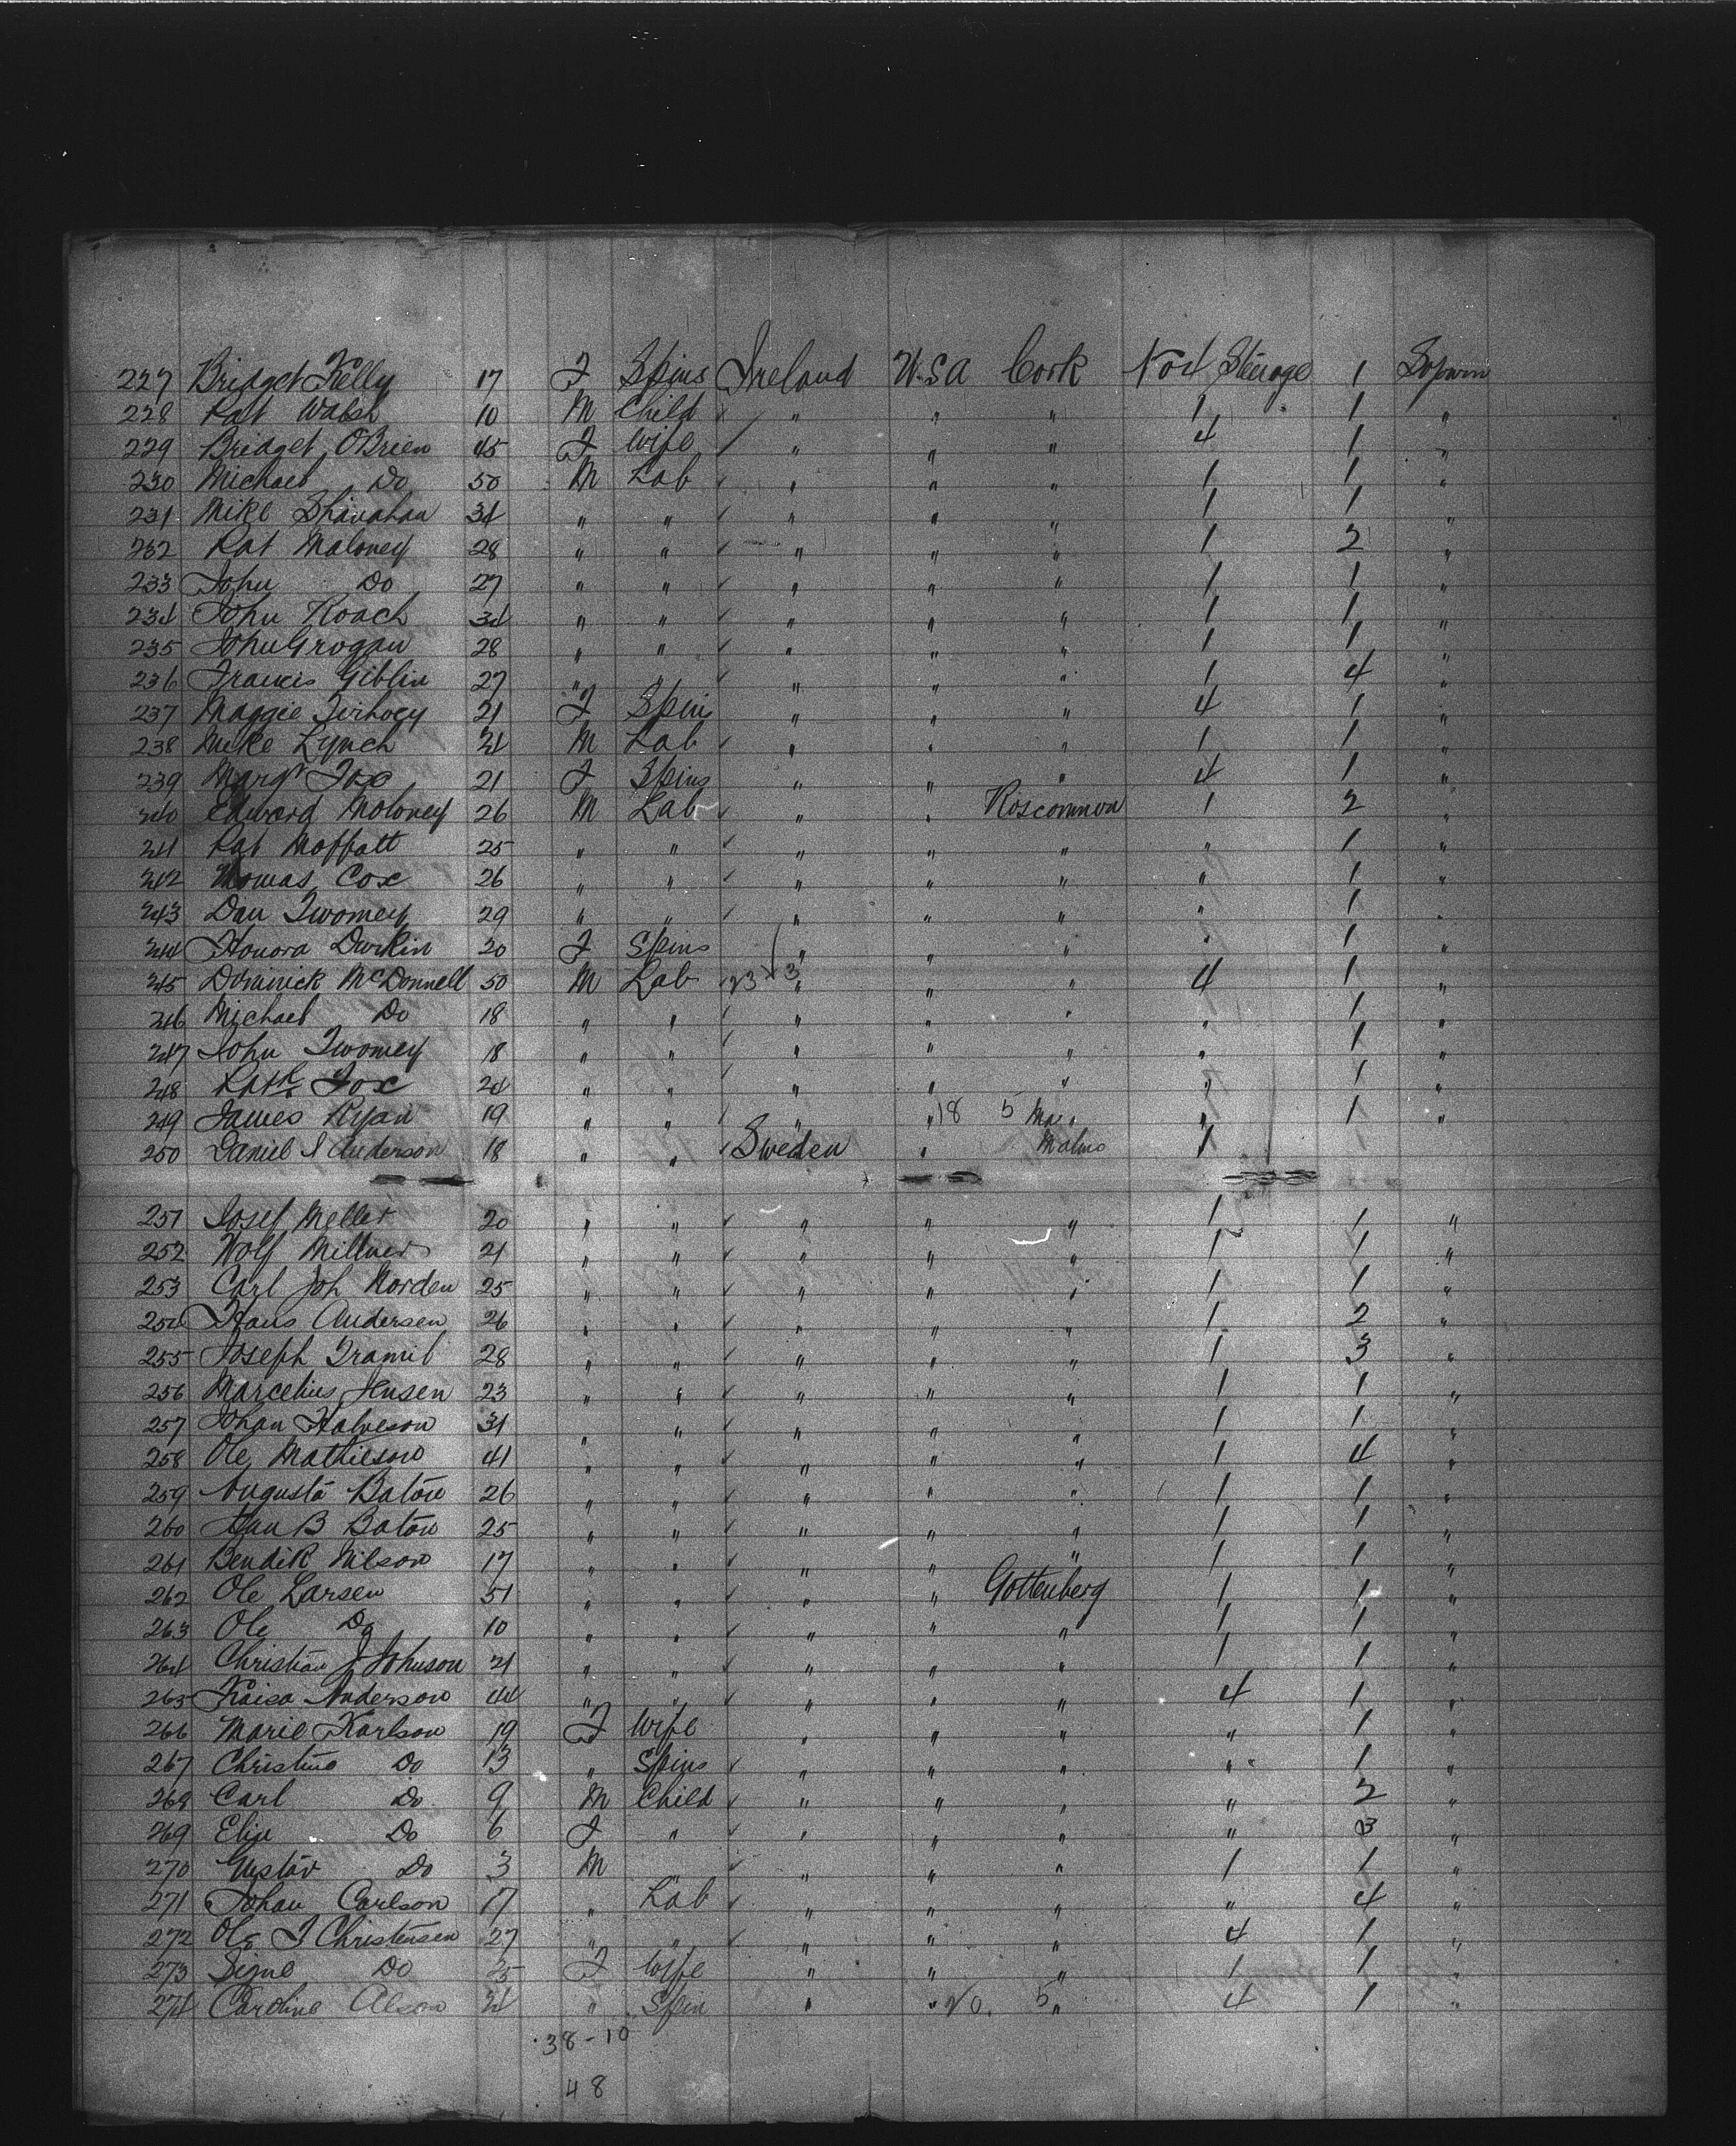 227 Bridget Kelly 17 F Spins Ireland U.S.A Cork No 4 Steerage 1
228 Pat Walsh 10 M Child " " " 1 1 "
229 Bridget OBrien 45 F Wife " " " 4 1 "
230 Michael Do 50 M Lab " " " 1 1 "
231 Mike Shanahan 34 " " " " " 1 1 "
232 Pat Maloney 28 " " " " " 1 2 "
233 John Do 27 " " " " " 1 1 "
234 John Roach 34 " " " " " 1 1 "
235 John Grogan 28 " " " " " 1 1 "
236 Francis Giblin 27 " " " " " 1 4 "
237 Maggie 21 F Spin " " " 4 1 "
238 Mike Lynch 21 M Lab " " " 1 1 "
239 Margt Fox 21 F Spins " " " 4 1 "
240 Edward Moloney 26 M Lab " " Roscommon 1 2 "
241 Pat Moffatt 25 " " " " " " 1 "
242 Thomas Cox 26 " " " " " " 1 "
243 Dan Twomey 29 " " " " " " 1 "
244 Honora Durkin 20 F Spins " " " " 1 "
245 Dominick McDonnell 50 M Lab " " " 4 1 "
246 Michael Do 18 " " " " " " 1 "
247 John Twomey 18 " " " " " " 1 "
248 Patk Fox 24 " " " " " " 1 "
249 James Ryan 19 " " " " 18 5 " 1 "
250 Daniel J Anderson 18 " " Sweden " Malmo 1
251 Josef Meller 20 " " " " " 1 1 "
252 Wolf Millner 21 " " " " " 1 1 "
253 Carl Joh Norden 25 " " " " " 1 1 "
254 Hans Andersen 26 " " " " " 1 2 "
255 Joseph Tramil 28 " " " " " 1 3 "
256 Marcelius Jensen 23 " " " " " 1 1 "
257 Johan Halveson 31 " " " " " 1 1 "
258 Ole Mathieson 41 " " " " " 1 4 "
259 Augusta Baton 26 " " " " " 1 1 "
260 B Baton 25 " " " " " 1 1 "
261 Bendik Nilson 17 " " " " " 1 1 "
262 Ole Larsen 51 " " " " Gottenberg 1 1 "
263 Ole Do 10 " " " " " 1 1 "
264 Christian J Johnson 21 " " " " " 1 1 "
265 Kaisa Anderson 44 " " " " " 4 1 "
266 Marie Karlson 19 F Wife " " " " 1 "
267 Christina Do 13 " Spins " " " " 1 "
268 Carl Do 9 M Child " " " " 2 "
269 Elise Do 6 F " " " " " 3 "
270 Gustav Do 3 M " " " 1 1 "
271 Johan Carlson 17 " Lab " " " " 4 "
272 Ole J Christensen 27 " " " " " 4 1 "
273 Signe Do 25 F Wife " " " 1 1 "
274 Caroline Olson 21 " Spin " " 20. 5 " 4 1 "
38-10
48